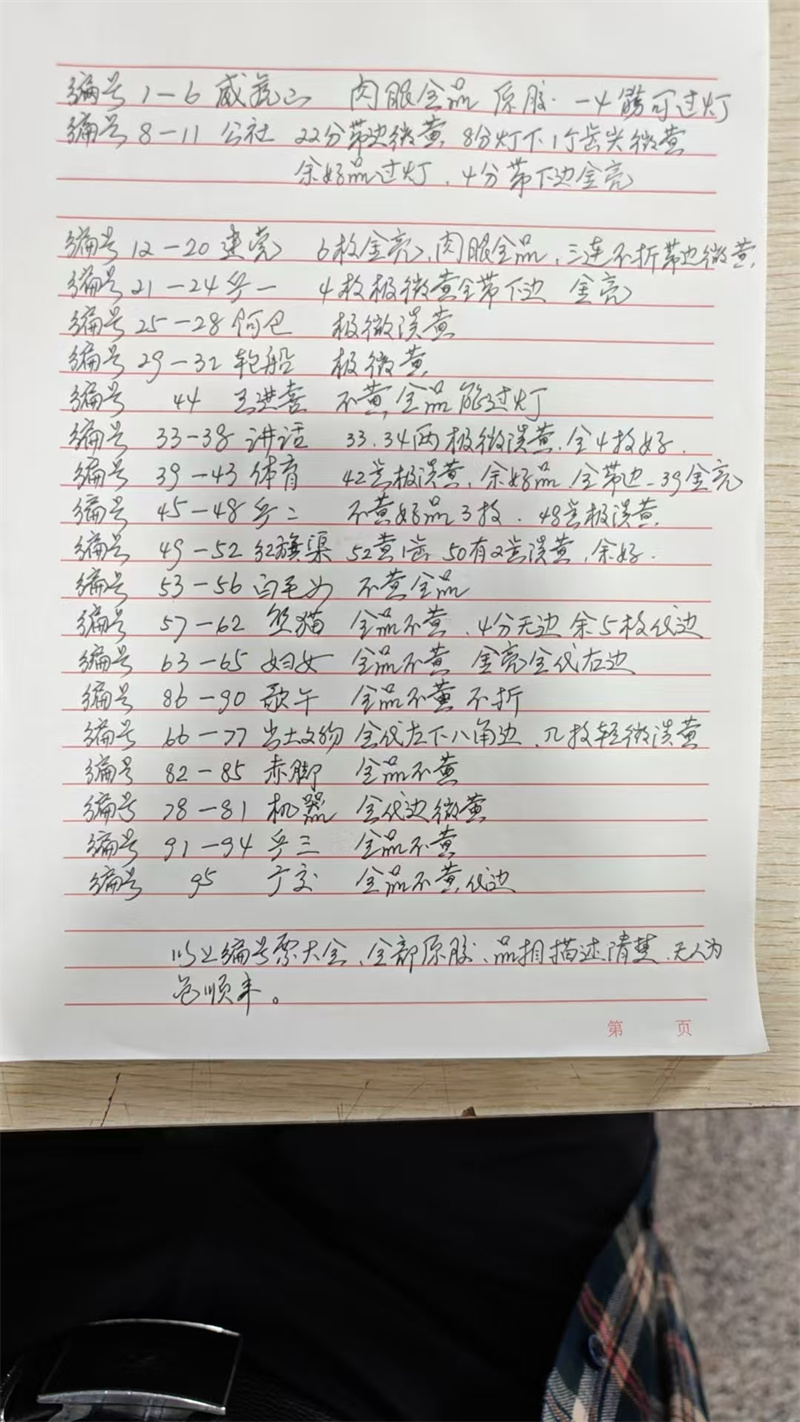 编号 1-6 威虎山 肉眼全品 原胶 -4 能可过灯
编号 8-11 公社 22分带边微黄 8分灯下1个齿尖微黄
余好品过灯、4分带下边金亮
编号 12-20 建党 6枚金亮、肉眼全品、三连不折带边微黄、
编号 21-24 乒一 4枚极微黄全带下边 金亮
编号 25-28 阿巴 极微淡黄
编号 29-32 轮船 极微黄
编号 44 王进喜 不黄全品能过灯
编号 33-38 讲话 33.34两极微淡黄、全4枚好.
编号 39-43 体育 42齿极淡黄、余好品 全带边-39金亮
编号 45-48 乒二 不黄好品3枚.48齿极淡黄.
编号 49-52 红旗渠 52黄1齿 50有2齿淡黄、余好.
编号 53-56 白毛女 不黄全品
编号 57-62 熊猫 全品不黄、4分无边 余5枚代边
编号 63-65 妇女 全品不黄 金亮全代右边
编号 86-90 歌午 全品不黄 不折
编号 66-77 出土文物 全代左下八角边、几枚轻微淡黄
编号 82-85 赤脚 全品不黄
编号 78-81 机器 全代边微黄
编号 91-94 乒三 全品不黄
编号 95 广交 全品不黄代边
以上编号票大全、全部原胶、品相描述清楚、无人为
包顺丰。
第 页